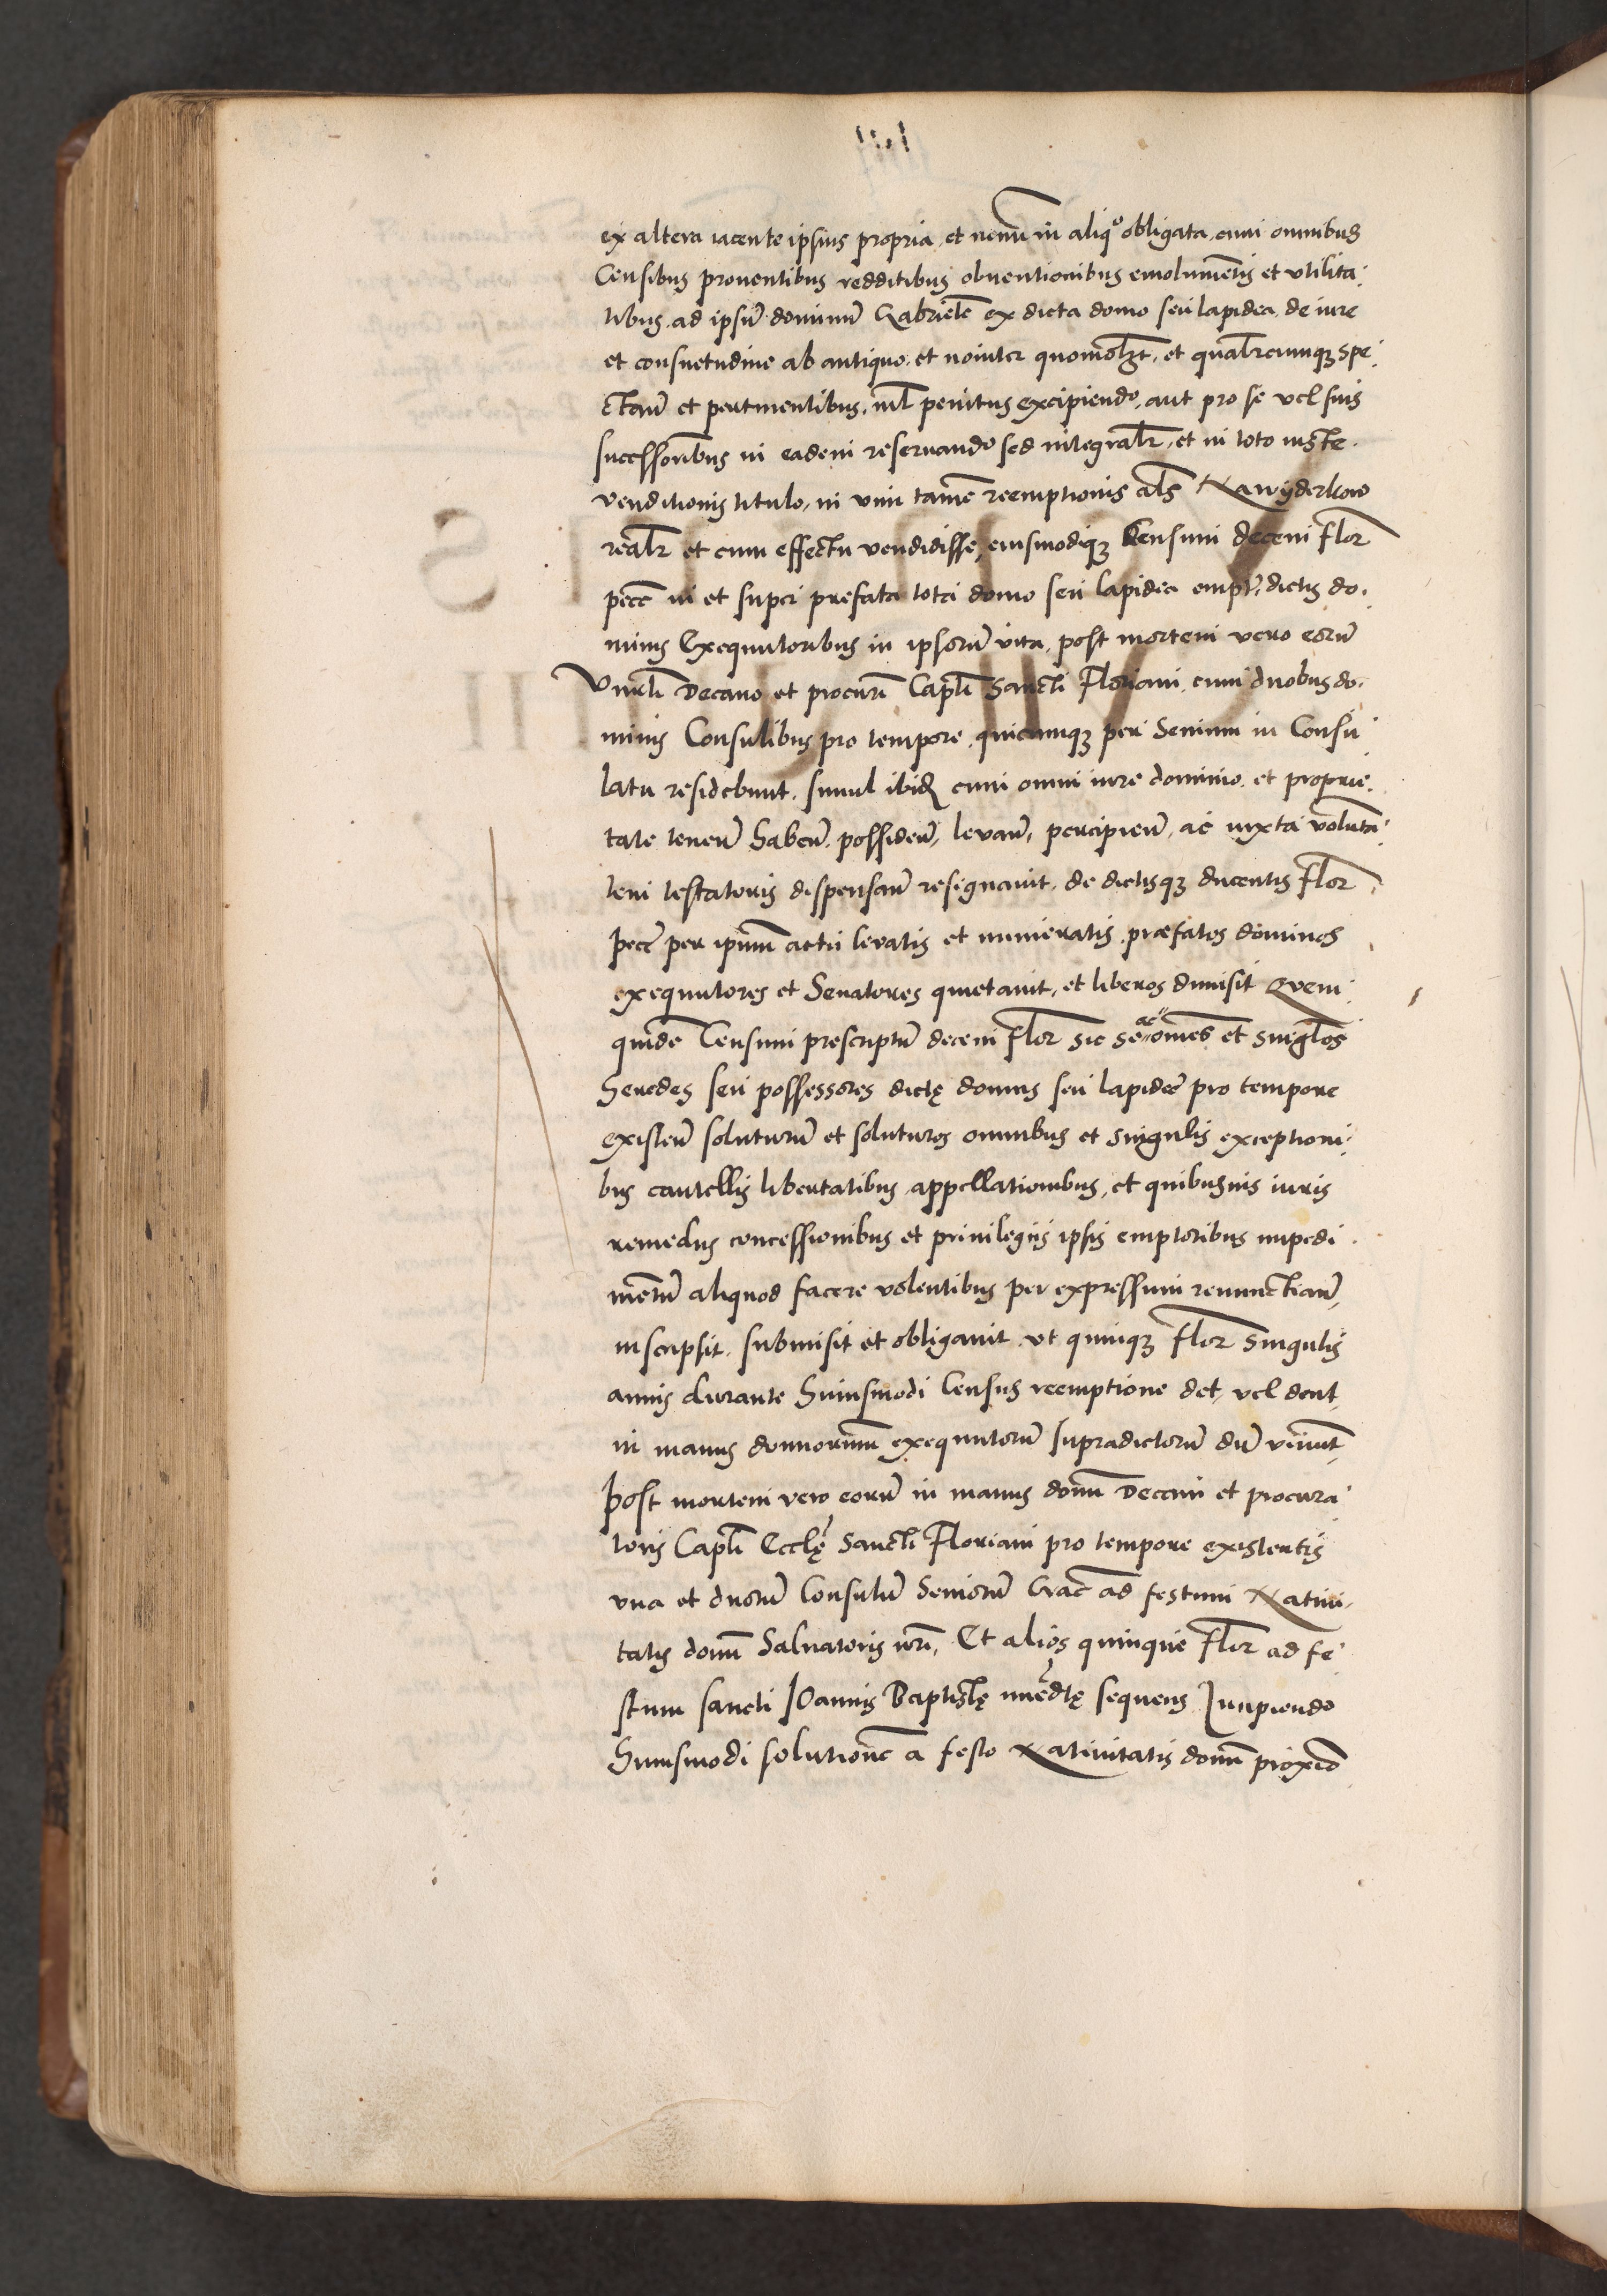 ex altera iacente ipsius propria, et nemini in aliqo obligata, cum omnibus
Censibus proventibus redditibus obventionibus emolumentis et utilita:
tibus, ad ipsum dominum Gabrielem ex dicta domo seu lapidea, de iure
et consuetudine ab antiquo, et noviter quomolzt, et qualrcumqz spe:
ctan et pertinentibus, nil penitus excipiendo, aut pro se vel suis
successoribus in eadem reservando sed integralr, et in toto iuste.
venditionis titulo, in vim tamen reemptionis als Nawyderkow
realr et cum effectu vendidisse, eiusmodiqz Censum decem flor
pecc in et super prefata tota domo seu lapidea empt, dictis do.
minis Exequutoribus in ipsorum vita, post mortem vero eorum
Vnrli Decano et procuri Capli Sancti Floriani, cum duobus do.
minis Consulibus pro tempore, quicumqz per Senium in Consu
latu residebunt, simul ibid cum omni iure dominio, et proprie.
tate tenen haben, possiden, levan, percipien, ac iuxta volunta:
tem testatoris dispensan resignavit, de dictisqz ducentis flor
pecc per ipsum actu levatis et numeratis, præfatos dominos
exequutores et Senatores quietavit, et liberos dimisit Quem
quidem Censum prescriptum decem flor sic se ac omnes et singlos
Heredes seu possessores dictę domus seu lapidee pro tempore
existen soluturum et soluturos omnibus et singulis exceptioni:
bus cautellis libertatibus, appellationibus, et quibusvis iuris
remediis concessionibus et privilegiis ipsis emptoribus impedi
mentum aliquod facere volentibus per expressum renunctian,
inscripsit, submisit et obligavit, ut quinqz flor singulis
annis durante Huiusmodi Census reemptione det, vel dent,
in manus dominorum exequutorum supradictorum dum vivunt,
Post mortem vero eorum in manus domini Decani et procura
toris Capli Ecclę Sancti Floriani pro tempore existentis
una et duorum Consulum Seniorum Crac ad festum Nativi,
tatis domini Salvatoris nri, Et alios quinque flor ad fe
stum sancti Ioannis Baptistę immedtę sequens, Incipiendo
Huiusmodi solutionem a festo Nativitatis domini proxeo